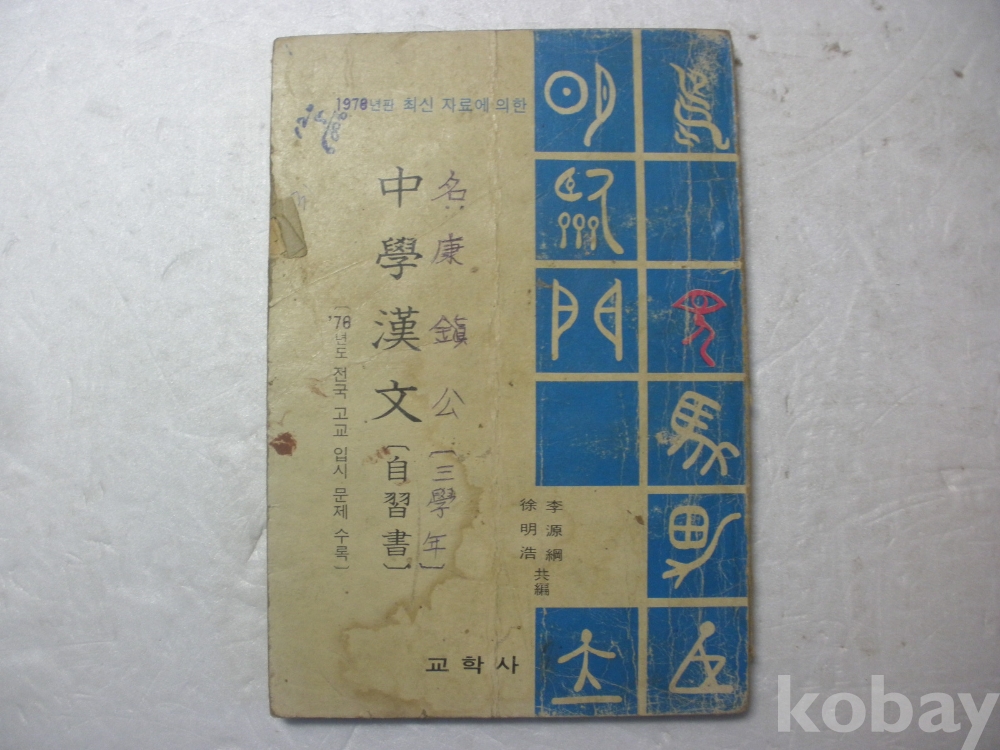 1978년판 최신 자료에 의한
中學漢文〔自習書〕
名康鎭公〔三學年〕
〔'78년도 전국 고교 입시 문제 수록〕
李源綱
徐明浩
共編
교학사
kobay